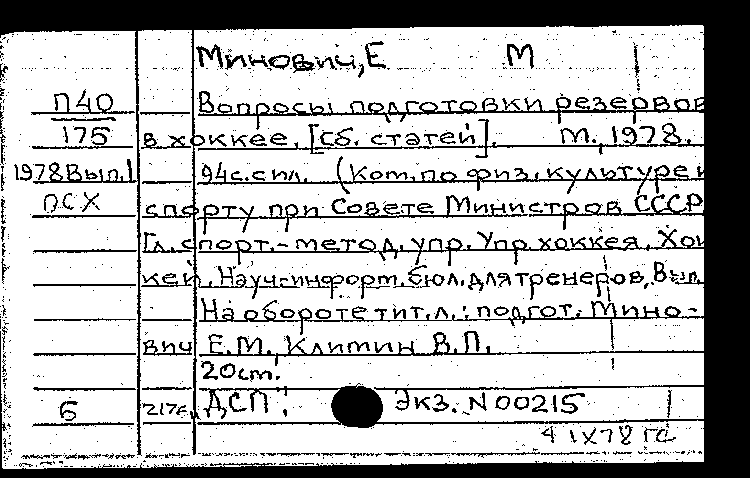 Минович, Е М
П40 Вопросы подготовки резервов
175 в хоккее. [Сб. статей]. М., 1978.
1978 Вып.1 94с. с ил. (Ком. по физ. культуре и
ПСХ спорту при Совете Министров СССР
Гл. спорт.-метод. упр. Упр хоккея. Хок
кей. Науч-информ. бюл. для тренеров, Вып.
На обороте тит. л.: подгот. Мино-
вич Е.М., Климин В.П.
20 см.
6 217г. ДСП. Экз. N 00215
4 IX 78